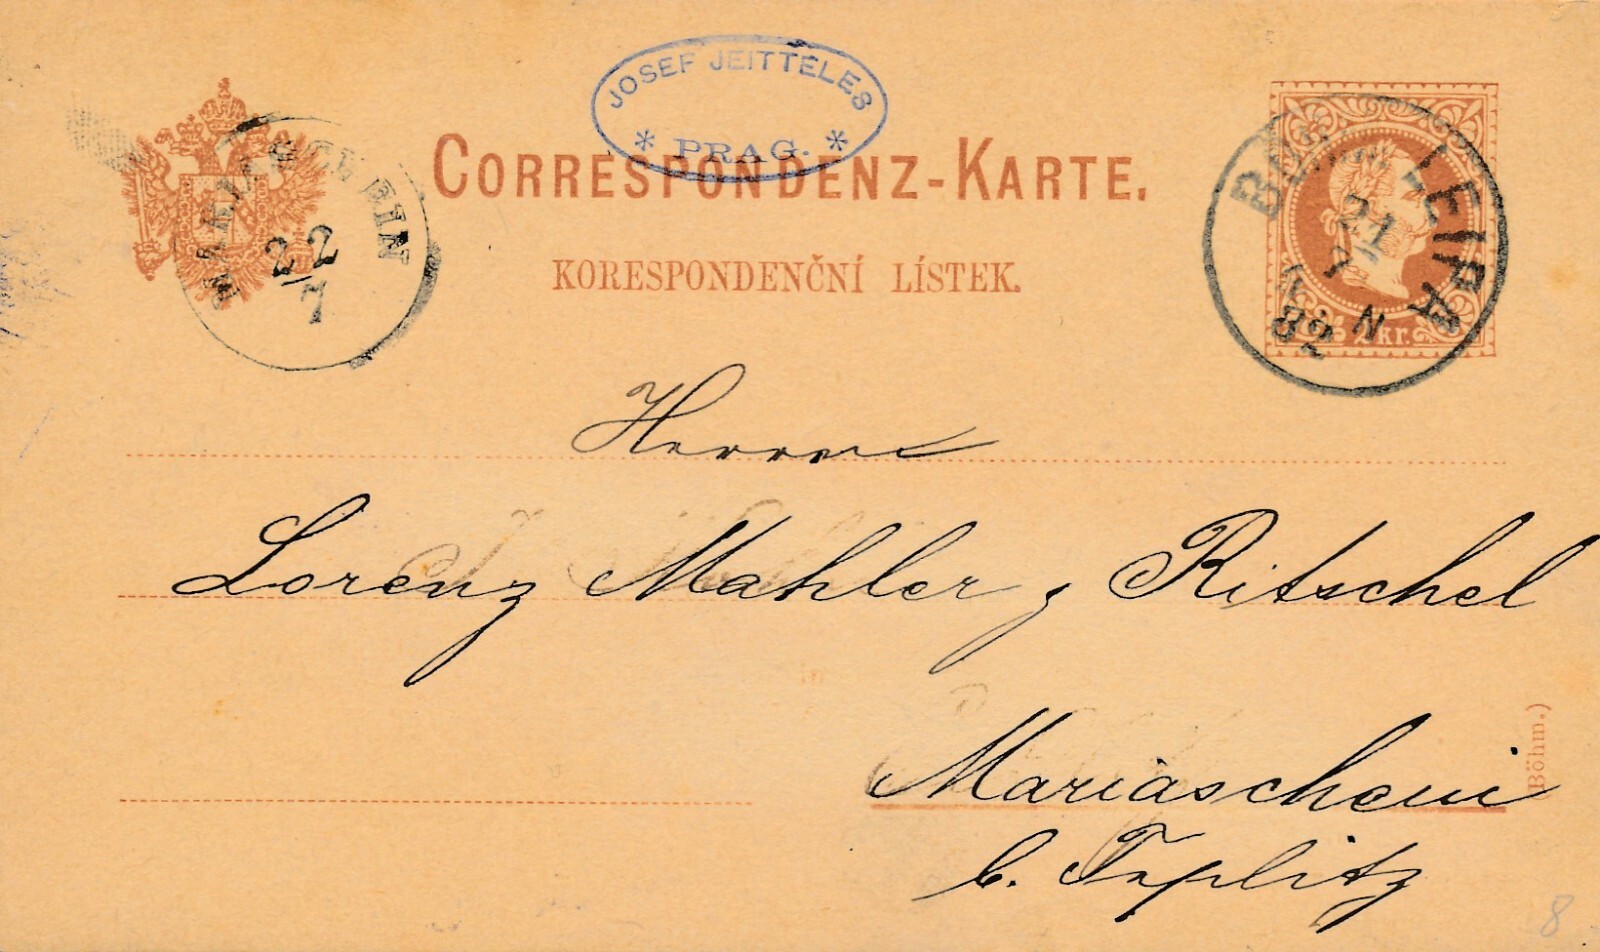 JOSEF JEITTELES
* PRAG. *
CORRESPONDENZ-KARTE.
KORESPONDENČNÍ LÍSTEK.
MARIASCHEIN
22
7
LEIPA
21
7
82
N
2 kr.
Herren
Lorenz Mahler & Ritschel
in
Mariaschein
b. Teplitz
(Böhm.)
8